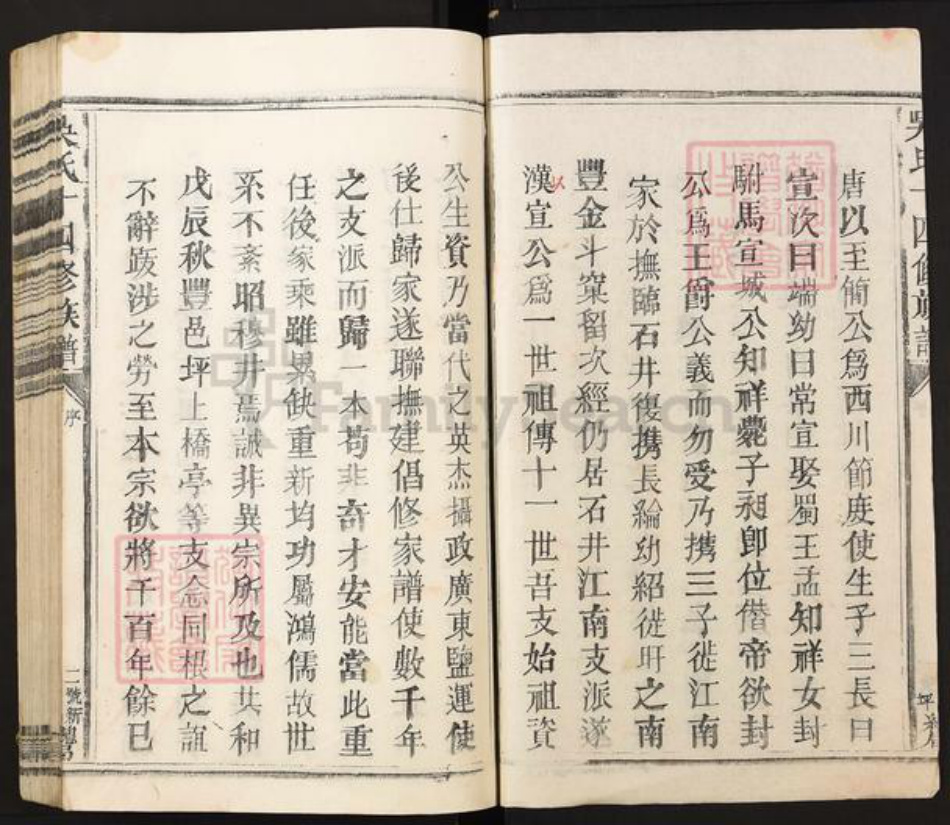 唐以至簡公爲西川節度使生子三長曰
宣次曰端幼曰常宣娶蜀王孟知祥女封
駙馬宣城公知祥薨子昶卽位僭帝欲封
公爲王爵公義而勿受乃携三子徙江南
家於撫臨石井復携長綸幼紹徙旴之南
豐金斗窠留次經仍居石井江南支派遂
漢宣公爲一世祖傳十一世吾支始祖資
以
公生資乃當代之英杰攝政廣東鹽運使
後仕歸家遂聯撫建倡修家譜使數千年
之支派而歸一本苟非奇才安能當此重
任後家乘雖累缺重新均功屬鴻儒故世
系不紊昭穆井焉誠非異宗所及也共和
戊辰秋豐邑坪上橋亭等支念同根之誼
不辭跋涉之勞至本宗欲將千百年餘已
吳氏十四修族譜
序
二號新
吳氏十四修族譜
FamilySearch